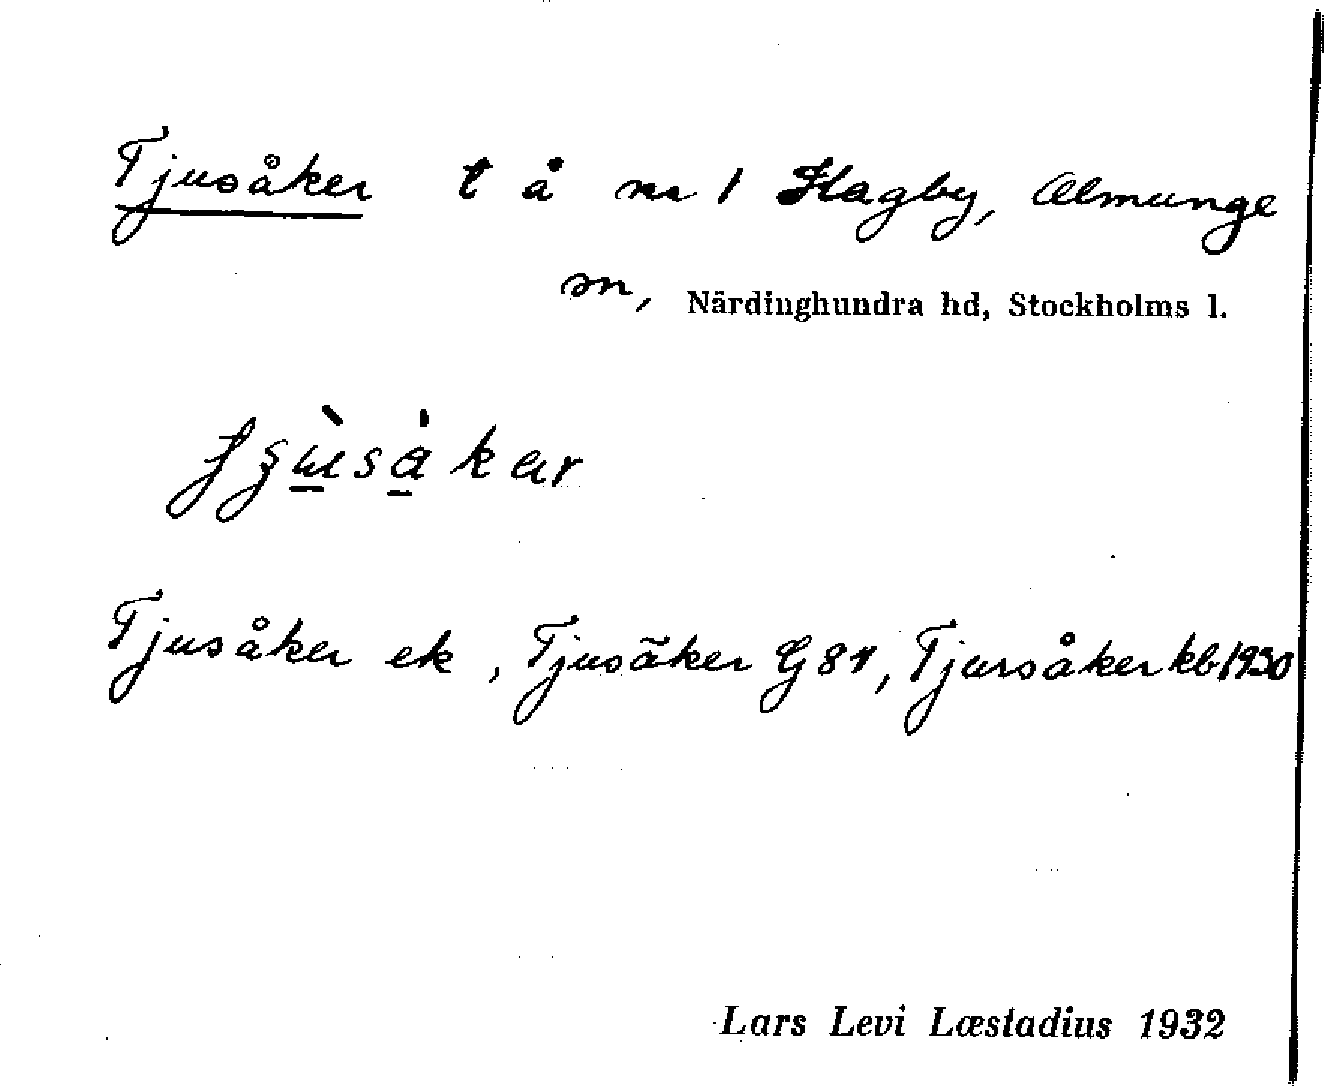 Tjusåker t å nr 1 Hagby, Almunge
sn, Närdinghundra hd, Stockholms l.
Tjusåker ek, Tjusåker G 81, Tjursåker kb 1930
Lars Levi Læstadius 1932